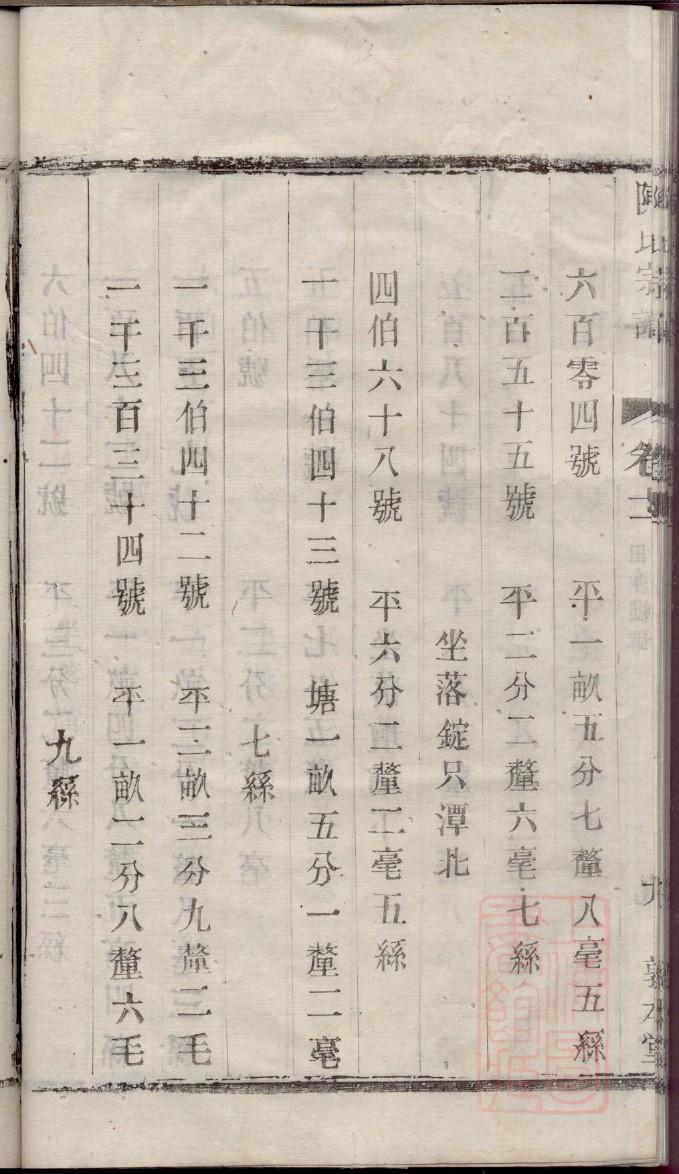 六百零四號　平一畝五分七釐八毫五絲
二百五十五號　平二分二釐六毫七絲
坐落錠只潭北
四伯六十八號　平六分二釐二毫五絲
一千三伯四十三號　塘一畝五分一釐二毫
七絲
一千三伯四十二號　平三畝三分九釐二毛
一千三百三十四號　平一畝二分八釐六毛
九絲